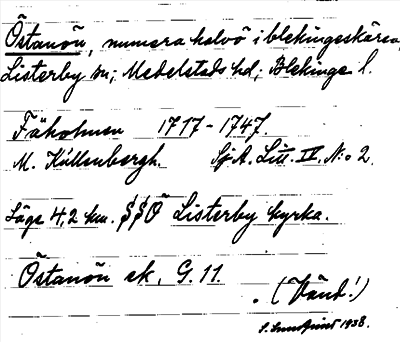 Östanön, numera halvö i blekingeskären,
Listerby sn; Medelstads hd; Blekinge l.
Fäholmen 1717-1747.
M. Küllenbergh. SjA. Litt. IV. N:o 2.
Läge 4,2 km. SSO Listerby kyrka.
Östanön ek. G. 11.
. (Vänd!)
S. Sundquist 1938.